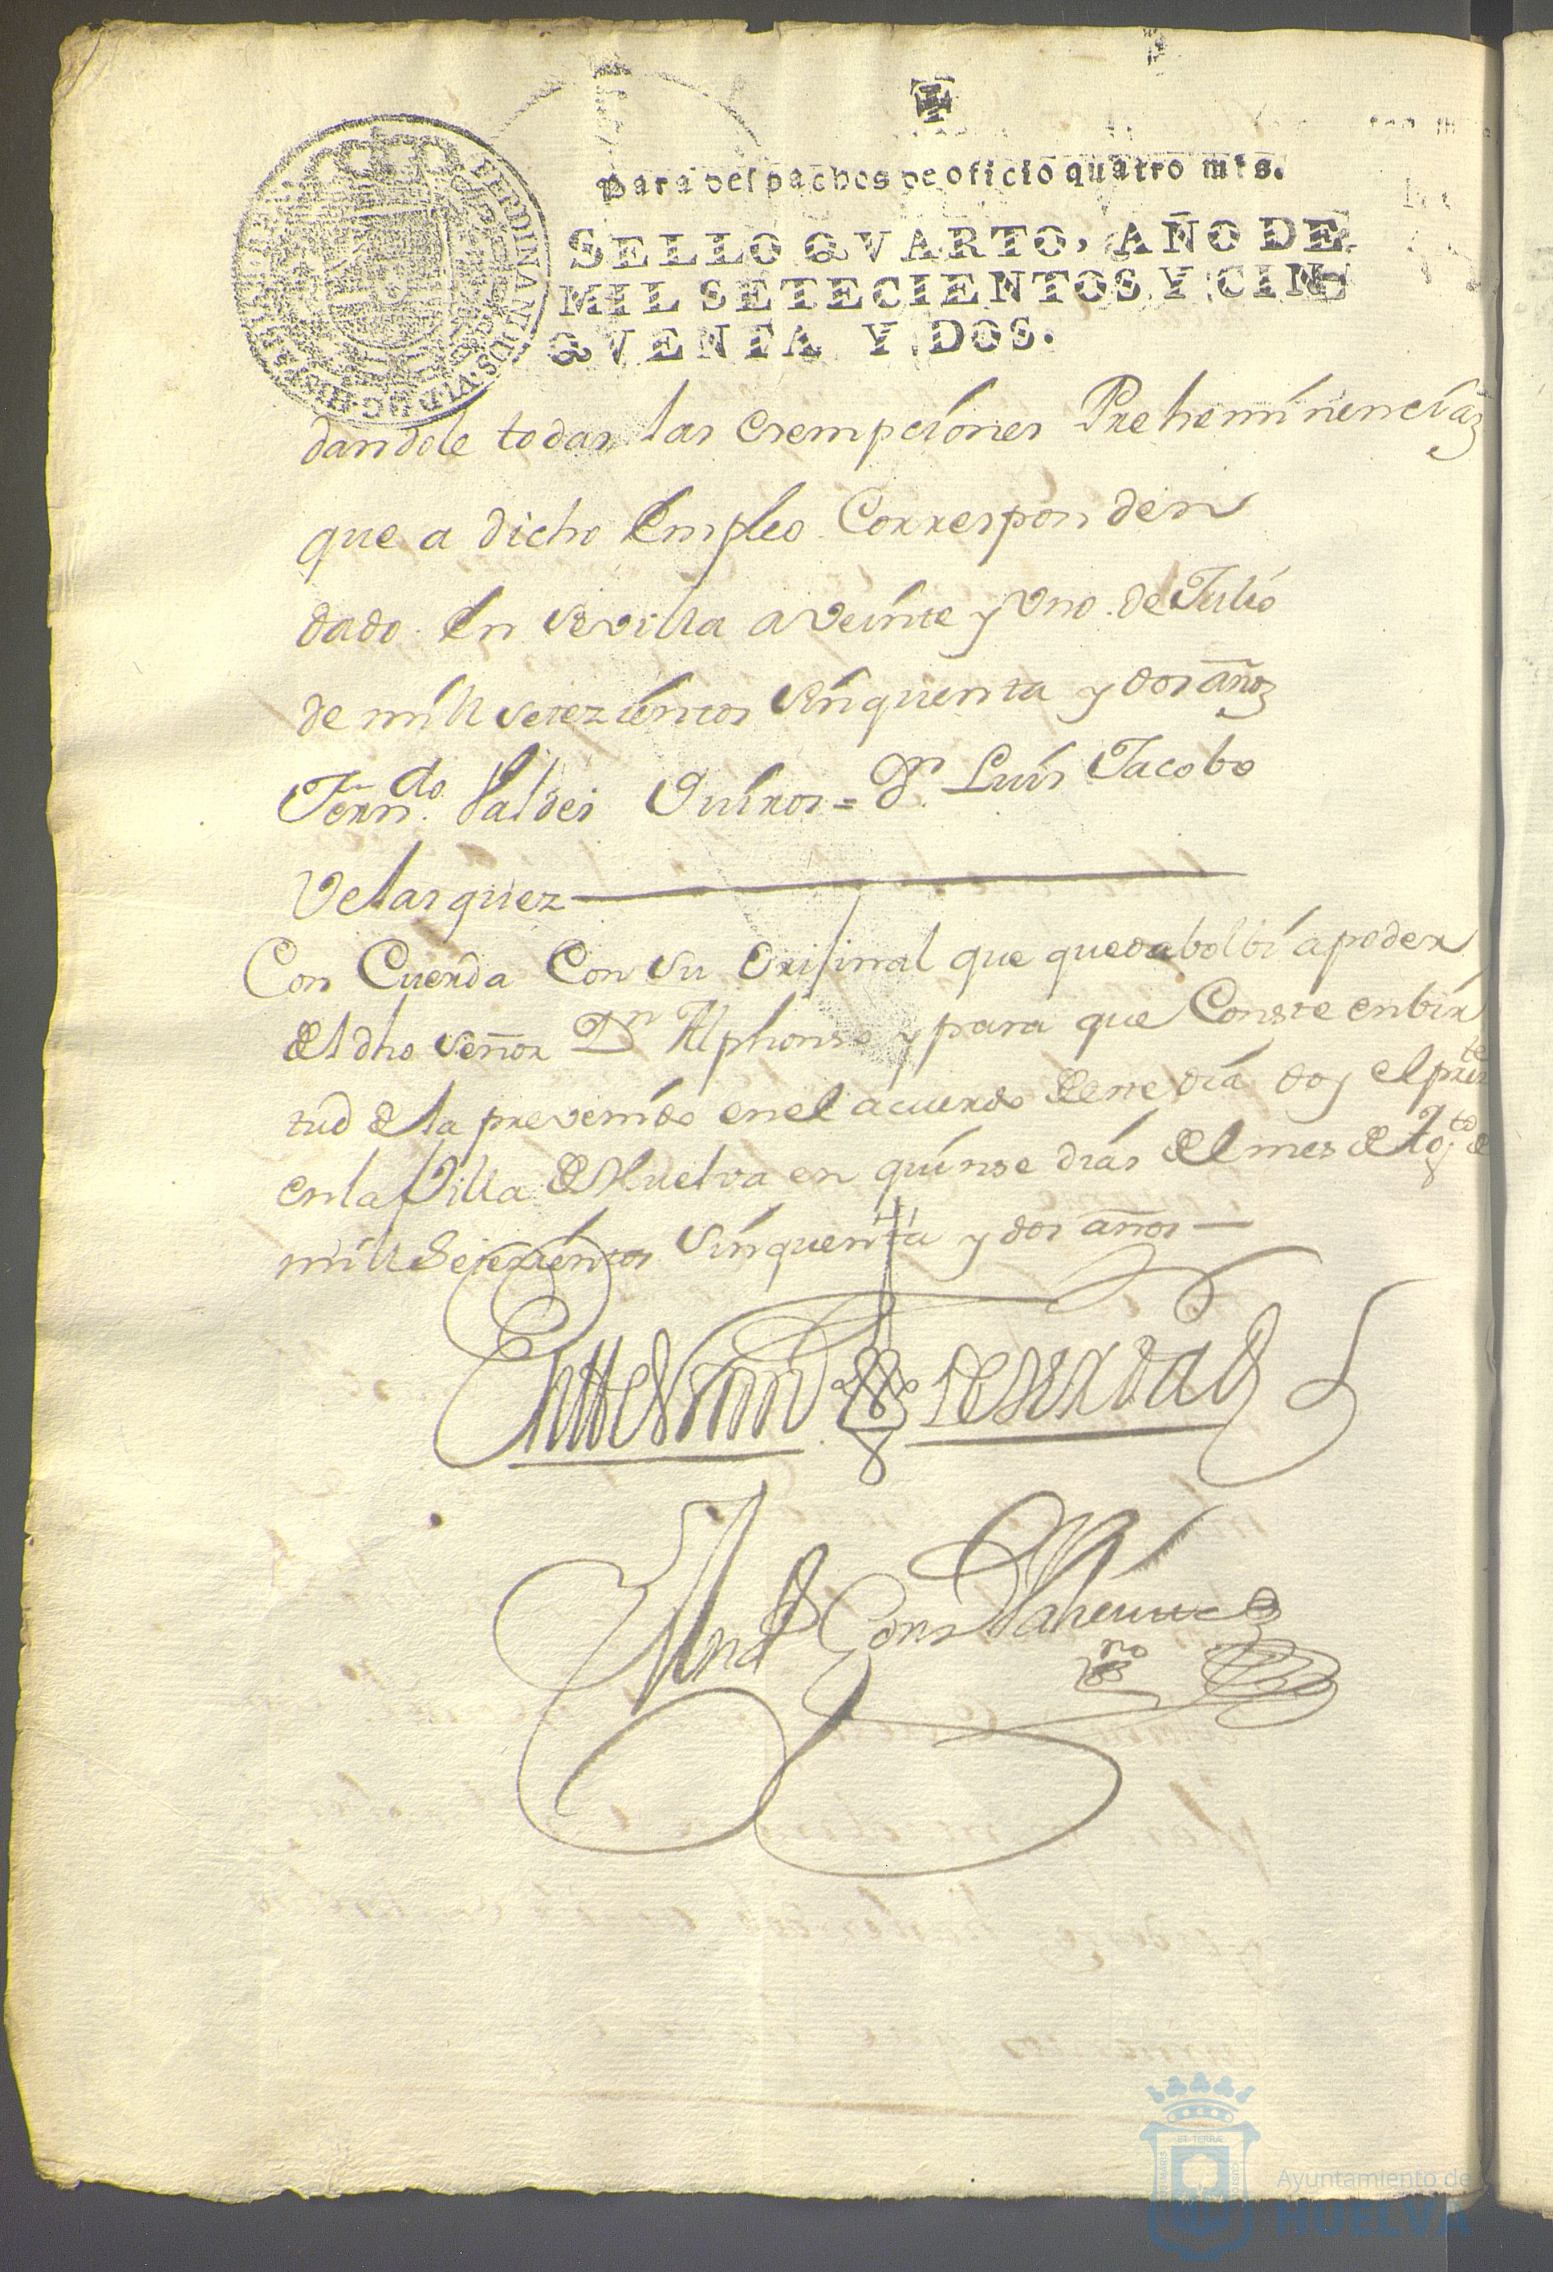 Para despachos de oficio quatro mrs.
SELLO QVARTO, AÑO DE
MIL SETECIENTOS Y CIN
QVENTA Y DOS.
FERDINANDUS VI D G
dandole todas las esempciones Preheminencias
que a dicho Empleo Corresponden
dado En Sevilla a Veinte y Uno de Julio
de mill setezientos Sinquenta y dos años
Fern.do Valdes Quiros = Dn. Luis Jacobo
Velasquez
Con Cuerda Con su Orijinal que queda bolbi a poder
del dho señor Dn Alphonso y para que Conste en bir
tud de la prevenido en el acuerdo de este dia doy el preste
en la Villa de Huelva en quinse dias del mes de Agto de
mill Setezientos Sinquenta y dos años
En testimo de verdad
no
Ayuntamiento de
HUELVA